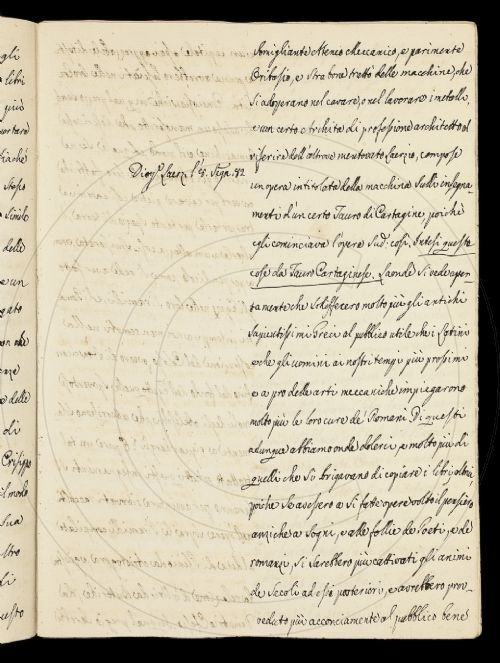 gli
libri
più
portare
fiaché
stesso
Simile
delle
e un
gato
on che
e delle
di
Crisippo
Sua
di
questo
Somigliante Ateneo Meccanico, e parimente
Britasio, e Strabone trattò delle macchine, che
Si adoperano nel cavare, o nel lavorare i metalli,
e un certo Archita di professione architetto al
riferire dell'altrove mentovato Laerzio, compose
Diog.s Laerz. l. 8. Segn. 82
un opera intitolata della macchina Sulli insegna
menti d'un certo Tauro di Cartagine, poichè
gli cominciava l'opera Sud: così. Intesi queste
cose da Tauro Cartaginese. Laonde Si vede aper
tamente che Si fecero molto più gli antichi
Sapientissimi Greci al pubblico utile che i Latini
e che gli uomini ai nostri tempi più prossimi
e a pro delle arti meccaniche impiegarono
molto più le loro cure de' Romani. Di questi
adunque abbiamo onde dolerci, e molto più di
quelli che Si brigavano di copiare i libri altrui,
poiche Se avessero a Si fatte opere volto il pensiero
anziche a Sogni, e alle follie de Poeti, e de
romanzi, Si Sarebbero più cattivati gli animi
de Secoli ad essi posteriori, e avrebbero prov
veduto più acconciamente al pubblico bene